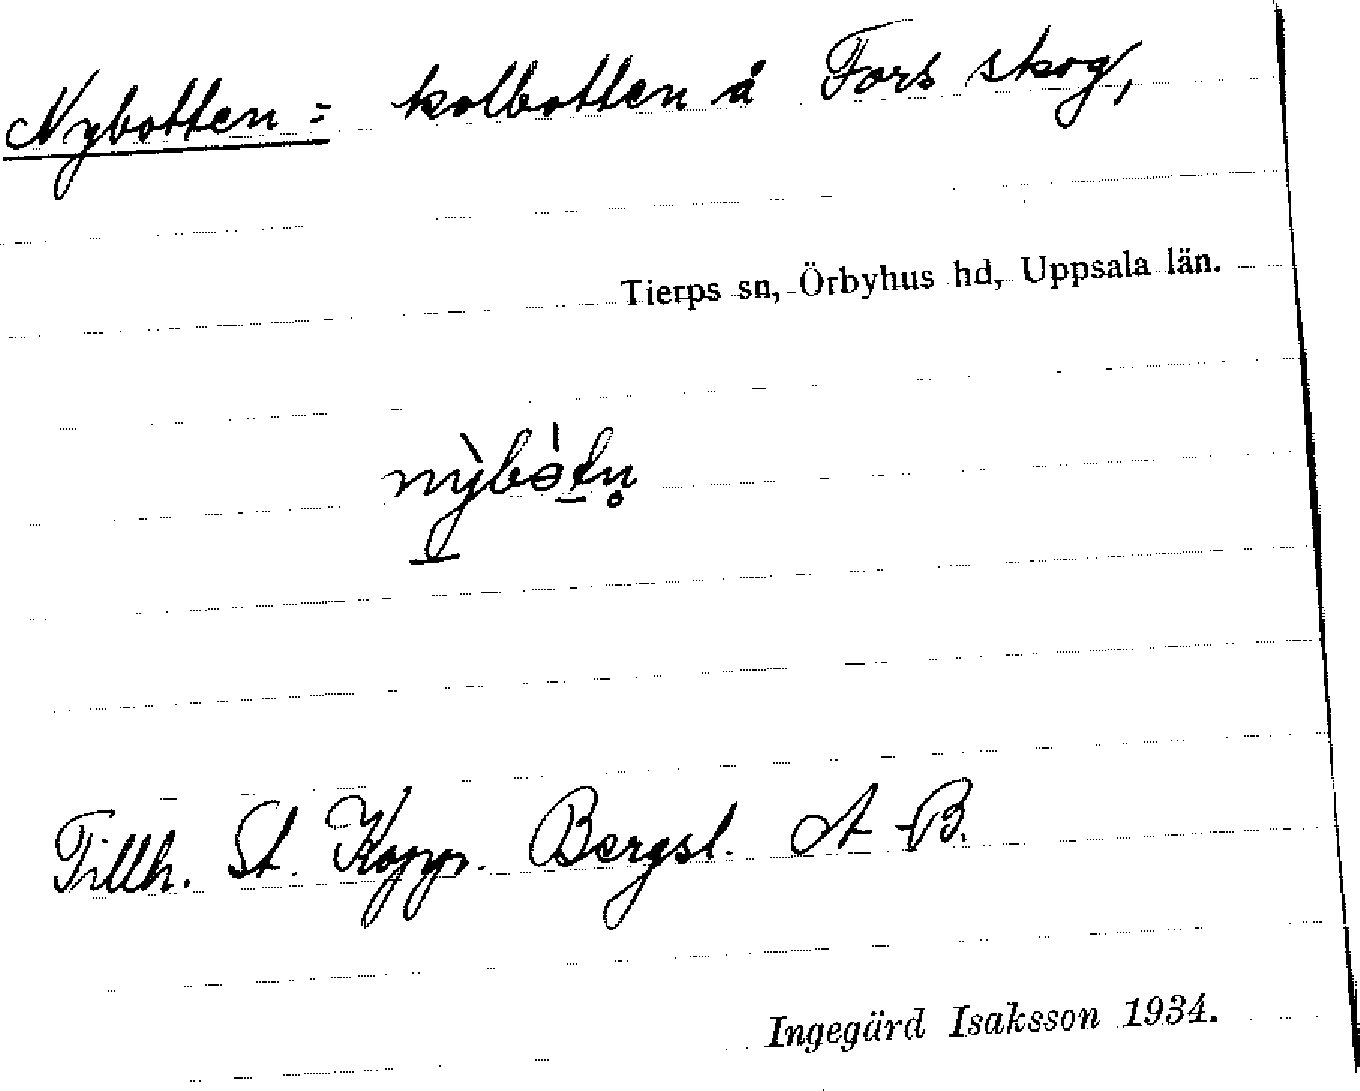 Nybotten = kolbotten å Fors skog,
Tierps sn, Örbyhus hd, Uppsala län.
Tillh. St. Kopp. Bergsl. A-B.
Ingegärd Isaksson 1934.